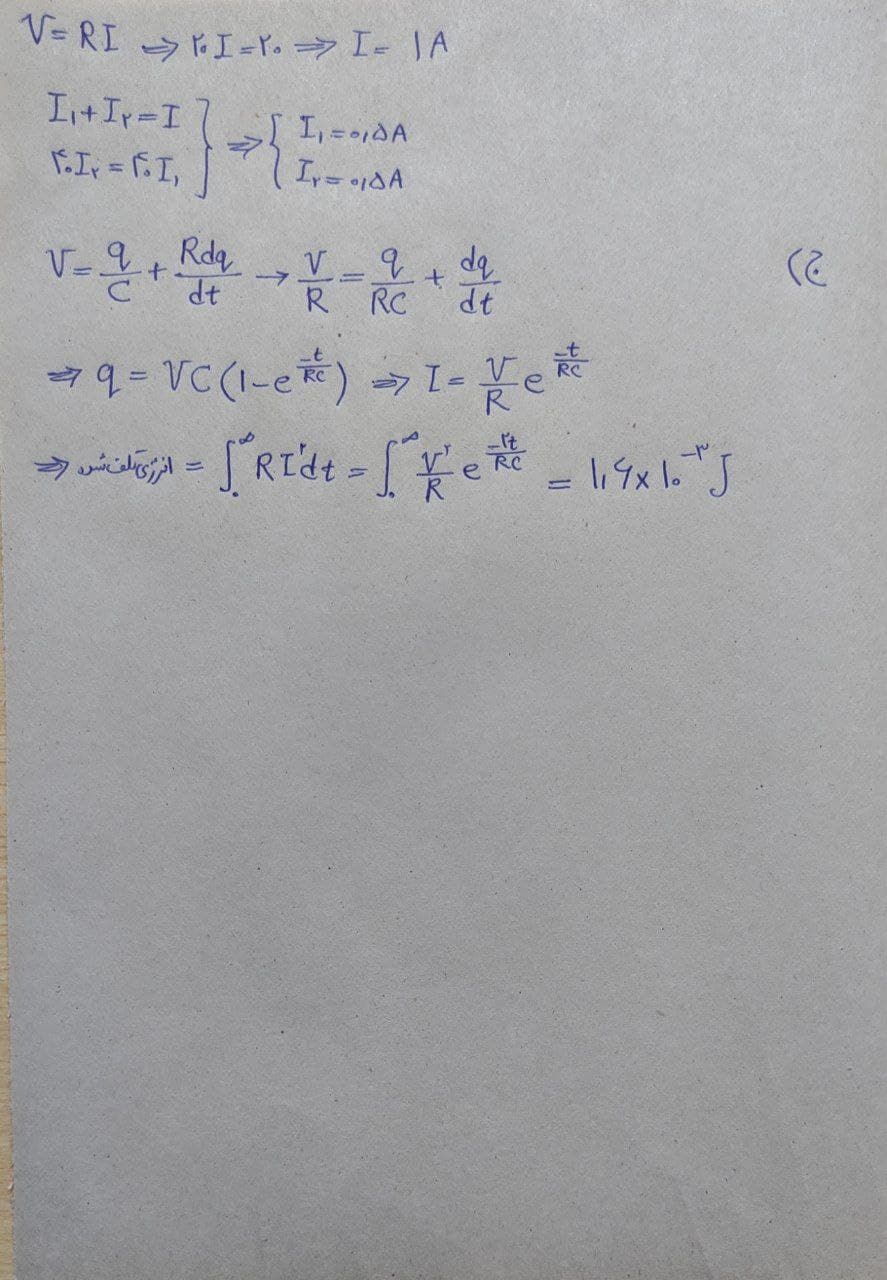 V = RI ⇒ ۲۰I = ۲۰ ⇒ I = ۱A
I₁ + I۲ = I } ⇒ { I₁ = ۰٫۵A
۴۰I۲ = ۴۰I₁ } { I۲ = ۰٫۵A
ج) V = q/C + Rdq/dt → V/R = q/RC + dq/dt
⇒ q = VC(۱ - e^(-t/RC)) ⇒ I = V/R e^(-t/RC)
⇒ انرژی تلف شده = ∫₀^∞ RI^۲dt = ∫₀^∞ V^۲/R e^(-۲t/RC) = ۱٫۶ × ۱۰^-۳ J